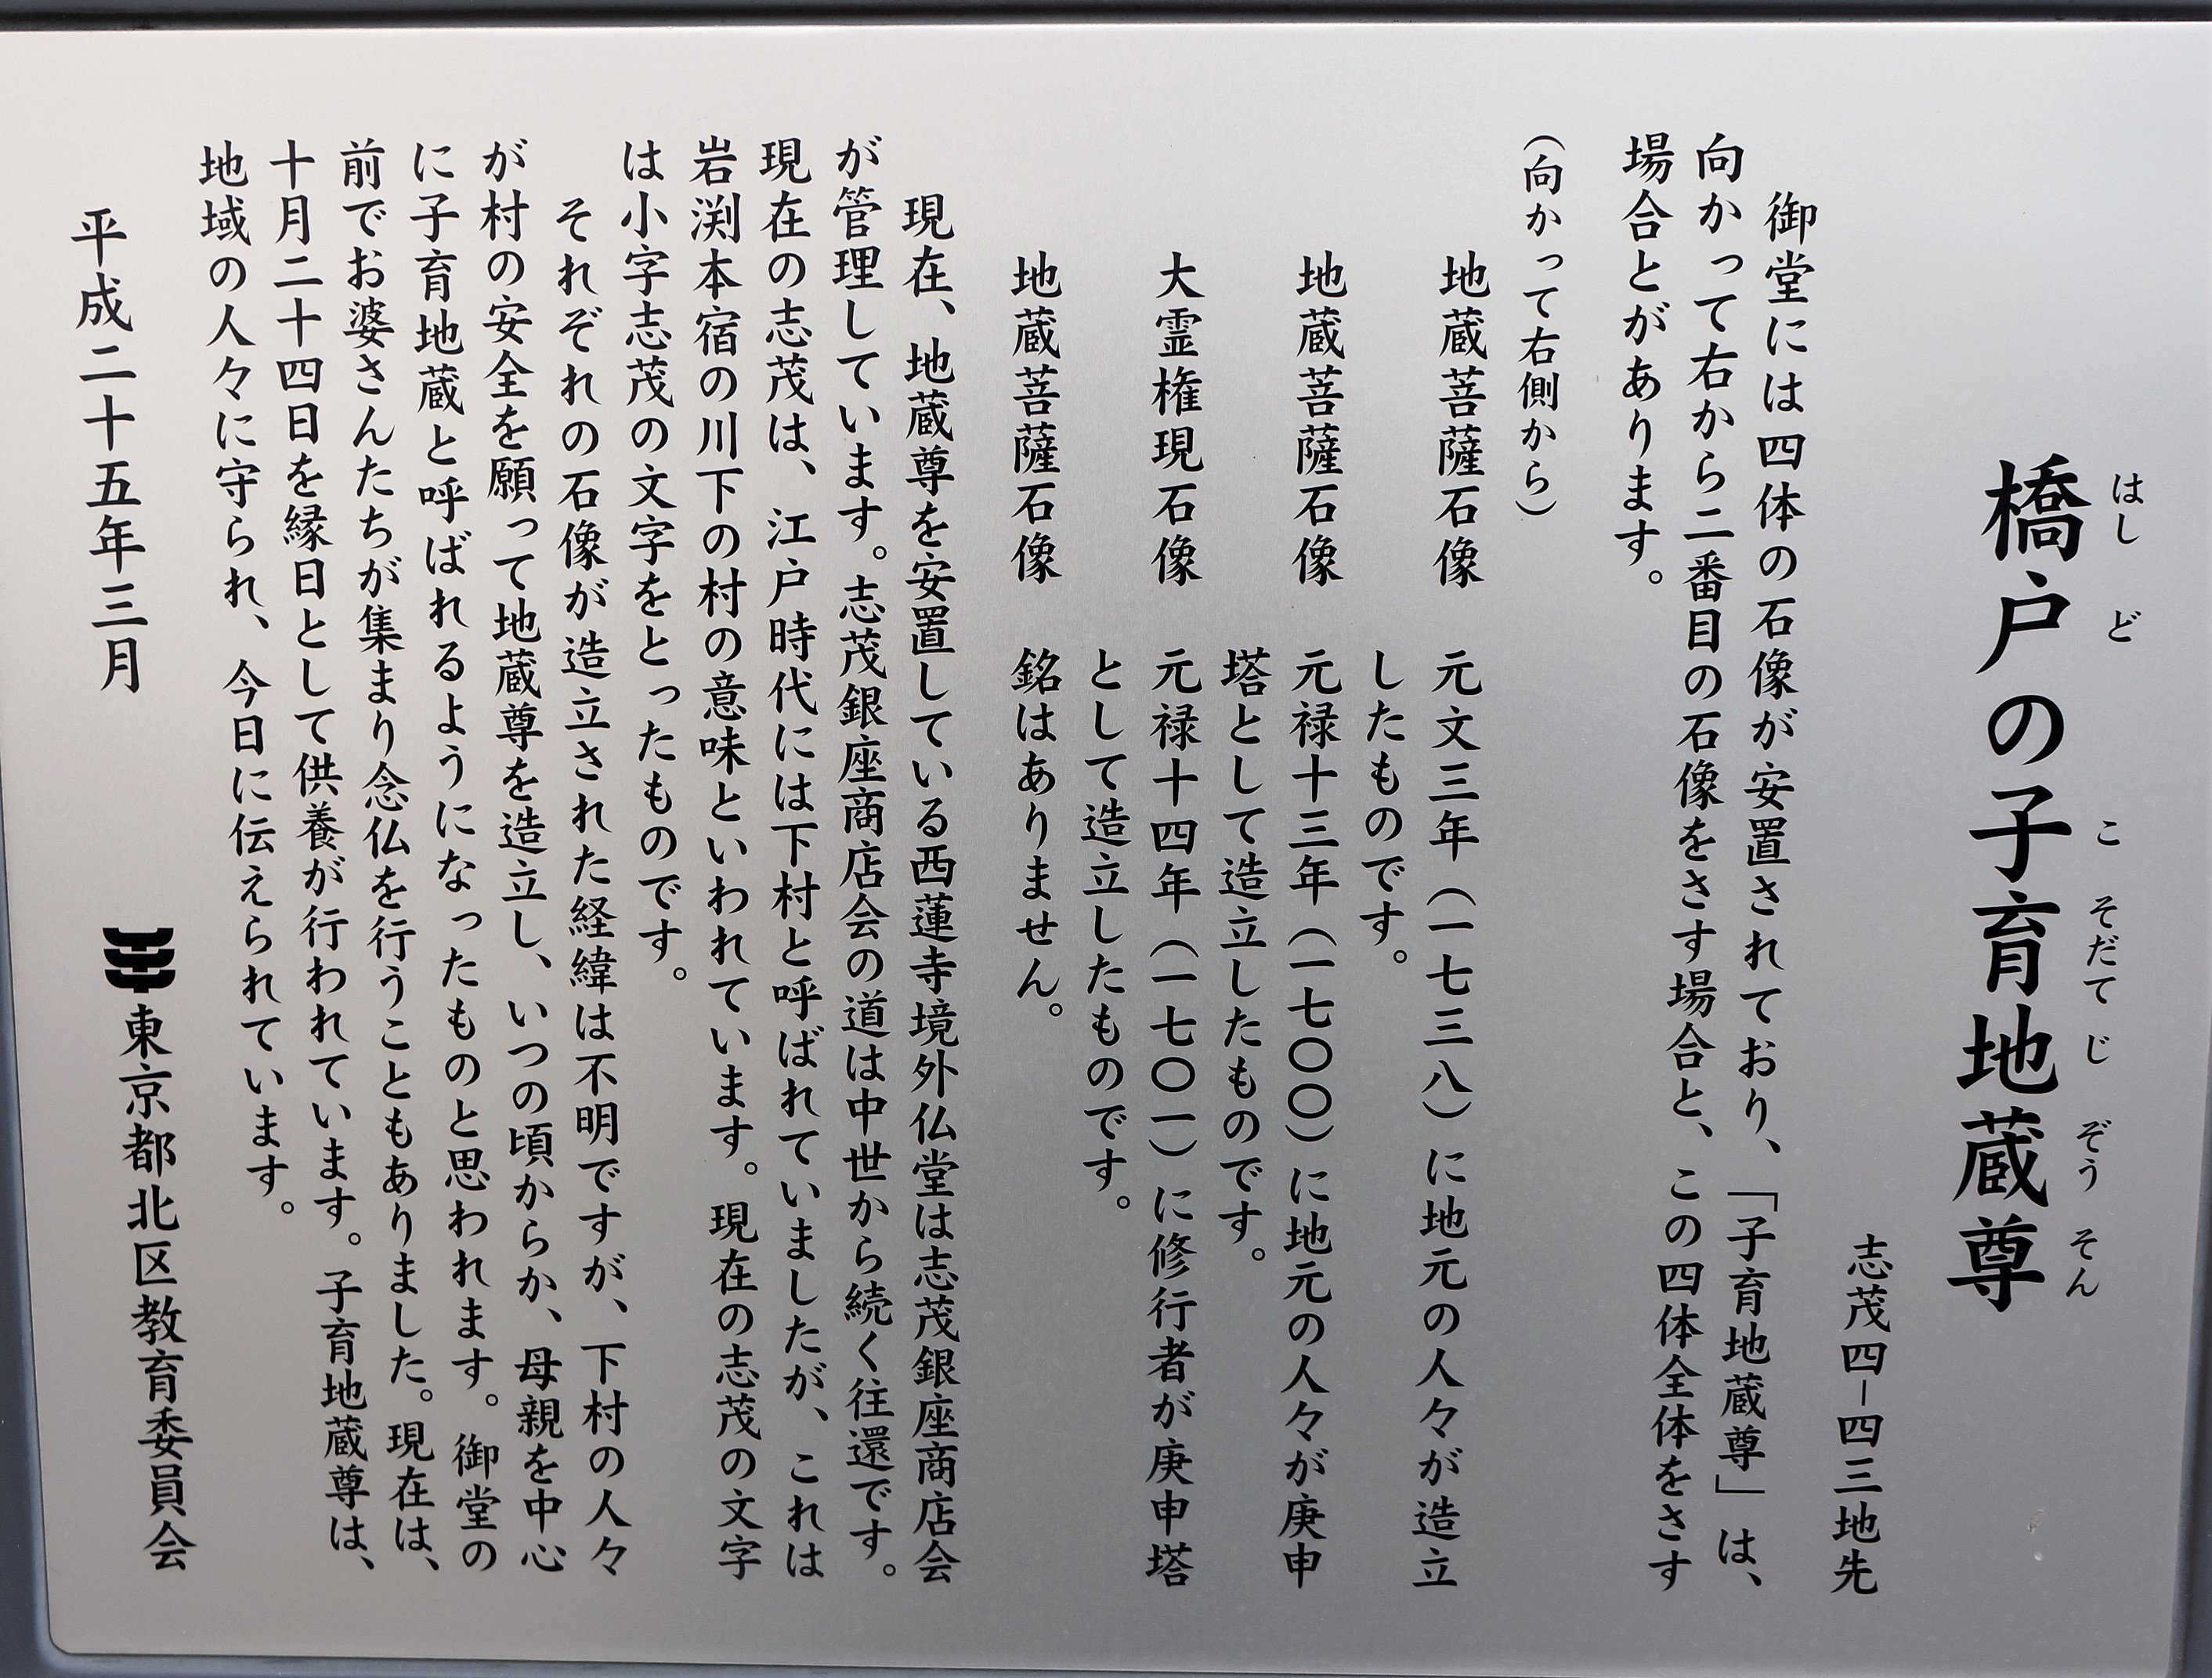 橋戸の子育地蔵尊
はし ど こ そだて じ ぞう そん
志茂四-四三地先
御堂には四体の石像が安置されており、「子育地蔵尊」は、
向かって右から二番目の石像をさす場合と、この四体全体をさす
場合とがあります。
(向かって右側から)
地蔵菩薩石像 元文三年(一七三八)に地元の人々が造立
したものです。
地蔵菩薩石像 元禄十三年(一七〇〇)に地元の人々が庚申
塔として造立したものです。
大霊権現石像 元禄十四年(一七〇一)に修行者が庚申塔
として造立したものです。
地蔵菩薩石像 銘はありません。
現在、地蔵尊を安置している西蓮寺境外仏堂は志茂銀座商店会
が管理しています。志茂銀座商店会の道は中世から続く往還です。
現在の志茂は、江戸時代には下村と呼ばれていましたが、これは
岩渕本宿の川下の村の意味といわれています。現在の志茂の文字
は小字志茂の文字をとったものです。
それぞれの石像が造立された経緯は不明ですが、下村の人々
が村の安全を願って地蔵尊を造立し、いつの頃からか、母親を中心
に子育地蔵と呼ばれるようになったものと思われます。御堂の
前でお婆さんたちが集まり念仏を行うこともありました。現在は、
十月二十四日を縁日として供養が行われています。子育地蔵尊は、
地域の人々に守られ、今日に伝えられています。
平成二十五年三月
東京都北区教育委員会